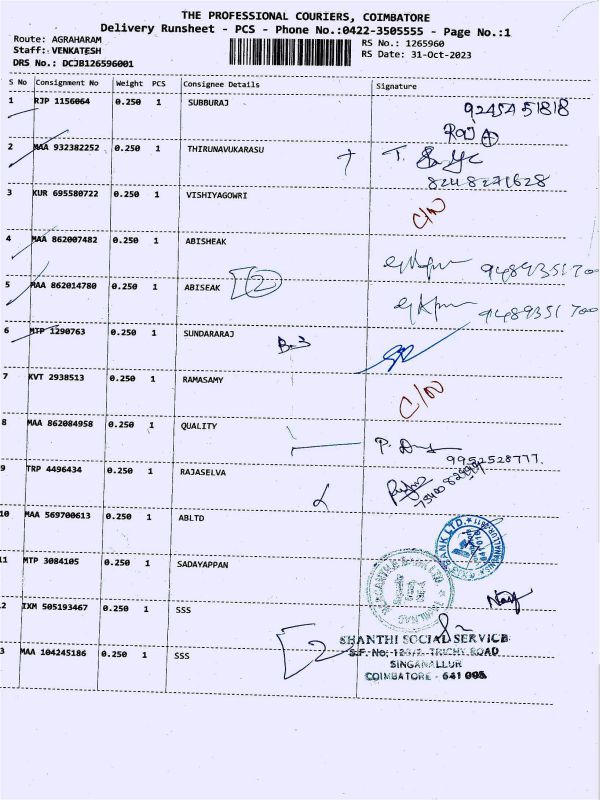 THE PROFESSIONAL COURIERS, COIMBATORE
Delivery Runsheet - PCS - Phone No.:0422-3505555 - Page No.:1
Route: AGRAHARAM
Staff: VENKATESH
DRS No.: DCJB126596001
RS No.: 1265960
RS Date: 31-Oct-2023
S No Consignment No Weight PCS Consignee Details Signature
1 RJP 1156064 0.250 1 SUBBURAJ 92454 51818
Raj
2 MAA 932382252 0.250 1 THIRUNAVUKARASU T.
8248271628
3 KUR 695580722 0.250 1 VISHIYAGOWRI C/N
4 MAA 862007482 0.250 1 ABISHEAK 9489351700
5 MAA 862014780 0.250 1 ABISEAK 2 9489351700
6 MTP 1290763 0.250 1 SUNDARARAJ
7 KVT 2938513 0.250 1 RAMASAMY C/N
8 MAA 862084958 0.250 1 QUALITY P.
9952528777.
9 TRP 4496434 0.250 1 RAJASELVA
10 MAA 569700613 0.250 1 ABLTD BANK LTD.
11 MTP 3084105 0.250 1 SADAYAPPAN
2 IXM 505193467 0.250 1 SSS
3 MAA 104245186 0.250 1 SSS 2
SHANTHI SOCIAL SERVICE
TRICHY ROAD
SINGANALLUR
COIMBATORE - 641 005.